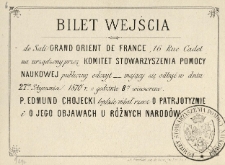 BILET WEJŚCIA
do Sali GRAND ORIENT DE FRANCE, 16 Rue Cadet
na urządzony przez KOMITET STOWARZYSZENIA POMOCY
NAUKOWEJ publiczny odczyt mający się odbyć w dniu
27go Stycznia 1870 r. o godzinie 8ej wieczorem.
P. EDMUND CHOJECKI będzie miał rzecz O PATRJOTYZMIE
i O JEGO OBJAWACH U RÓŻNYCH NARODÓW.